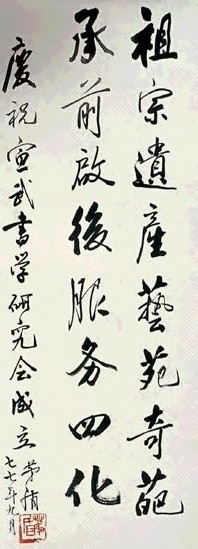 祖宗遺產藝苑奇葩
承前啟後服务四化
慶祝宣武書学研究会成立
茅娋 七七年九月